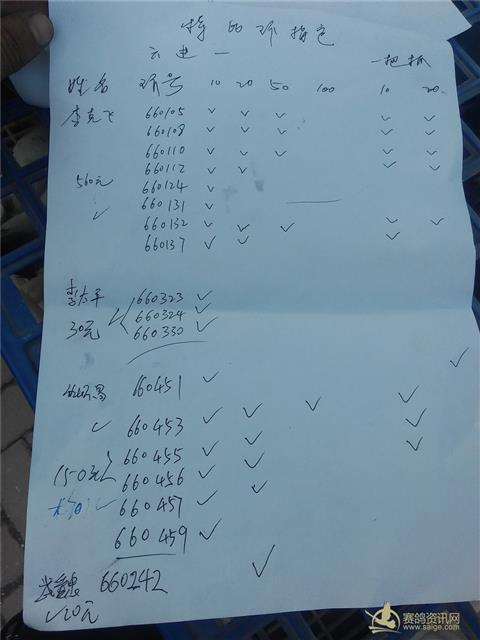 特比环指定
六进一 一把抓
姓名 环号 10 20 50 100 10 20
李克飞 660105 ✓ ✓ ✓ ✓ ✓
660108 ✓ ✓ ✓ ✓ ✓
660110 ✓ ✓ ✓ ✓ ✓
660112 ✓ ✓ ✓ ✓
560元 660124 ✓
✓ 660131 ✓
660132 ✓ ✓ ✓ ✓ ✓
660137 ✓ ✓ ✓
李太平 660323 ✓
660324 ✓
30元 660330 ✓
✓
160451 ✓ ✓
✓ 660453 ✓ ✓ ✓ ✓
660455 ✓ ✓ ✓
150元 660456 ✓ ✓
✓ 660457 ✓ ✓
660459 ✓
660242 ✓
✓20元
赛鸽资讯网
www.saige.com